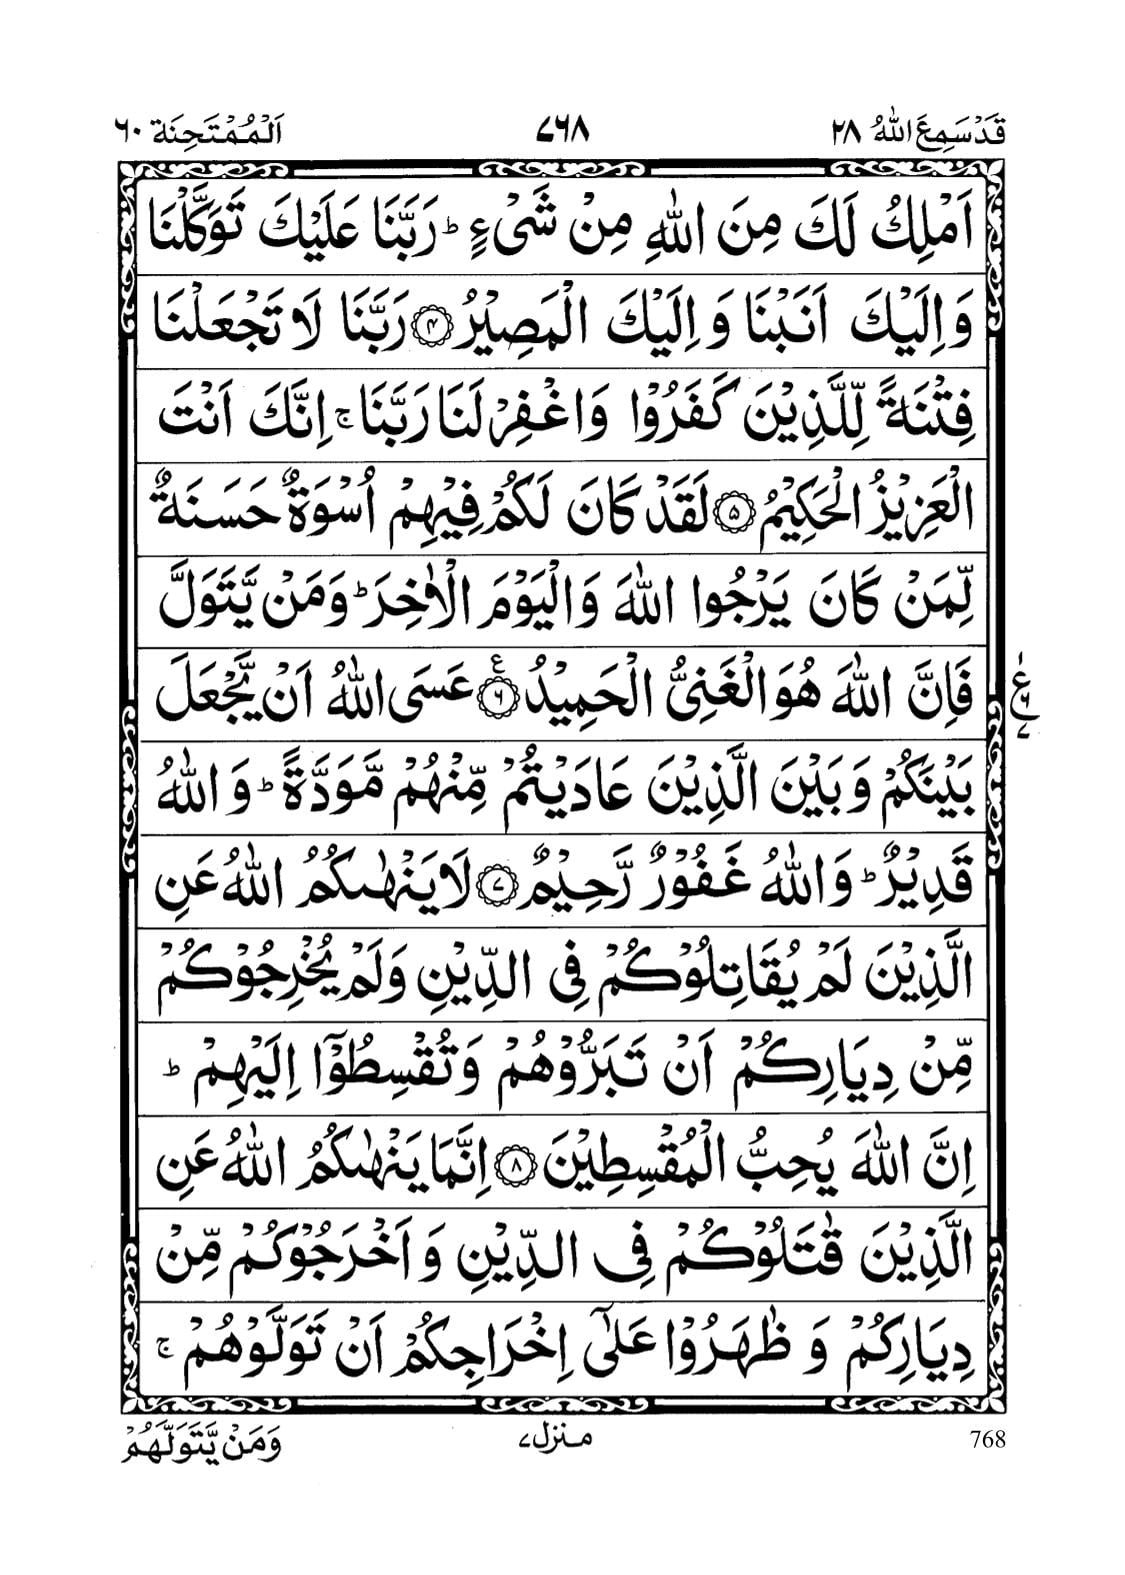 قَدْ سَمِعَ اللّٰهُ ٢٨
٧٦٨
اَلْمُمْتَحِنَة ٦٠
اَمْلِكُ لَكَ مِنَ اللّٰهِ مِنْ شَیْءٍ ؕ رَبَّنَا عَلَیْكَ تَوَكَّلْنَا
وَ اِلَیْكَ اَنَبْنَا وَ اِلَیْكَ الْمَصِیْرُ ﴿۴﴾ رَبَّنَا لَا تَجْعَلْنَا
فِتْنَةً لِّلَّذِیْنَ كَفَرُوْا وَ اغْفِرْ لَنَا رَبَّنَا ۚ اِنَّكَ اَنْتَ
الْعَزِیْزُ الْحَكِیْمُ ﴿۵﴾ لَقَدْ كَانَ لَكُمْ فِیْهِمْ اُسْوَةٌ حَسَنَةٌ
لِّمَنْ كَانَ یَرْجُوا اللّٰهَ وَ الْیَوْمَ الْاٰخِرَ ؕ وَ مَنْ یَّتَوَلَّ
فَاِنَّ اللّٰهَ هُوَ الْغَنِیُّ الْحَمِیْدُ ﴿۶﴾ ع عَسَی اللّٰهُ اَنْ یَّجْعَلَ
ع ۶ ٧
بَیْنَكُمْ وَ بَیْنَ الَّذِیْنَ عَادَیْتُمْ مِّنْهُمْ مَّوَدَّةً ؕ وَ اللّٰهُ
قَدِیْرٌ ؕ وَ اللّٰهُ غَفُوْرٌ رَّحِیْمٌ ﴿۷﴾ لَا یَنْهٰىكُمُ اللّٰهُ عَنِ
الَّذِیْنَ لَمْ یُقَاتِلُوْكُمْ فِی الدِّیْنِ وَ لَمْ یُخْرِجُوْكُمْ
مِّنْ دِیَارِكُمْ اَنْ تَبَرُّوْهُمْ وَ تُقْسِطُوْۤا اِلَیْهِمْ ؕ
اِنَّ اللّٰهَ یُحِبُّ الْمُقْسِطِیْنَ ﴿۸﴾ اِنَّمَا یَنْهٰىكُمُ اللّٰهُ عَنِ
الَّذِیْنَ قٰتَلُوْكُمْ فِی الدِّیْنِ وَ اَخْرَجُوْكُمْ مِّنْ
دِیَارِكُمْ وَ ظٰهَرُوْا عَلٰۤی اِخْرَاجِكُمْ اَنْ تَوَلَّوْهُمْ ۚ
768
منزل ٧
وَ مَنْ یَّتَوَلَّهُمْ